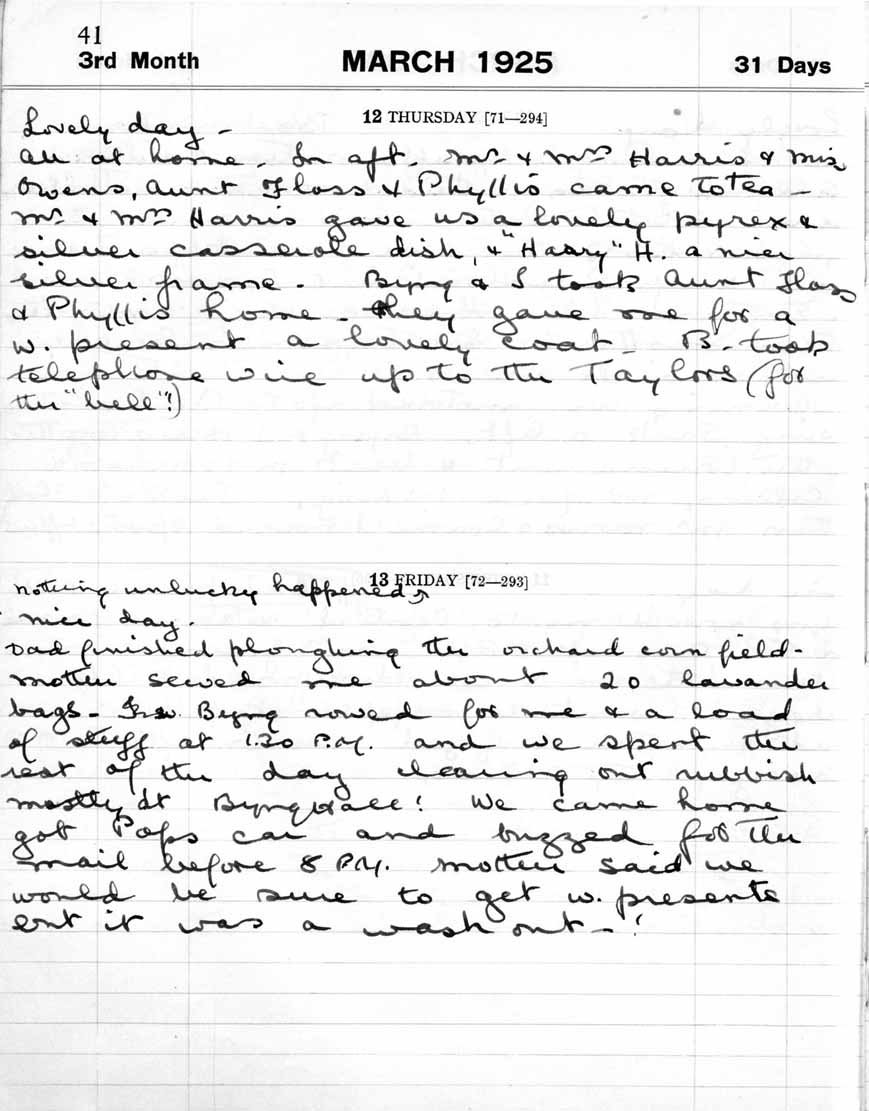 41
3rd Month MARCH 1925 31 Days
12 THURSDAY [71—294]
Lovely day –
All at home. In aft. Mr. & Mrs Harris & Miss
Owens, Aunt Floss & Phyllis came to tea –
Mr. & Mrs Harris gave us a lovely pyrex &
silver casserole dish, & "Harry" H. a nice
silver frame. Byng & I took Aunt Floss
& Phyllis home – they gave me for a
w. present a lovely coat – B. took
telephone wire up to the Taylors (for
the "bell"!)
13 FRIDAY [72—293]
Nothing unlucky happened
nice day.
Dad finished ploughing the orchard corn field –
Mother sewed me about 20 lavander
bags – Byng rowed for me & a load
of stuff at 1.30 P.M. and we spent the
rest of the day cleaning out rubbish
mostly at We came home
got Pops car and buzzed for the
mail before 8 P.M. Mother said we
would be sure to get w. presents
but it was a wash out – !